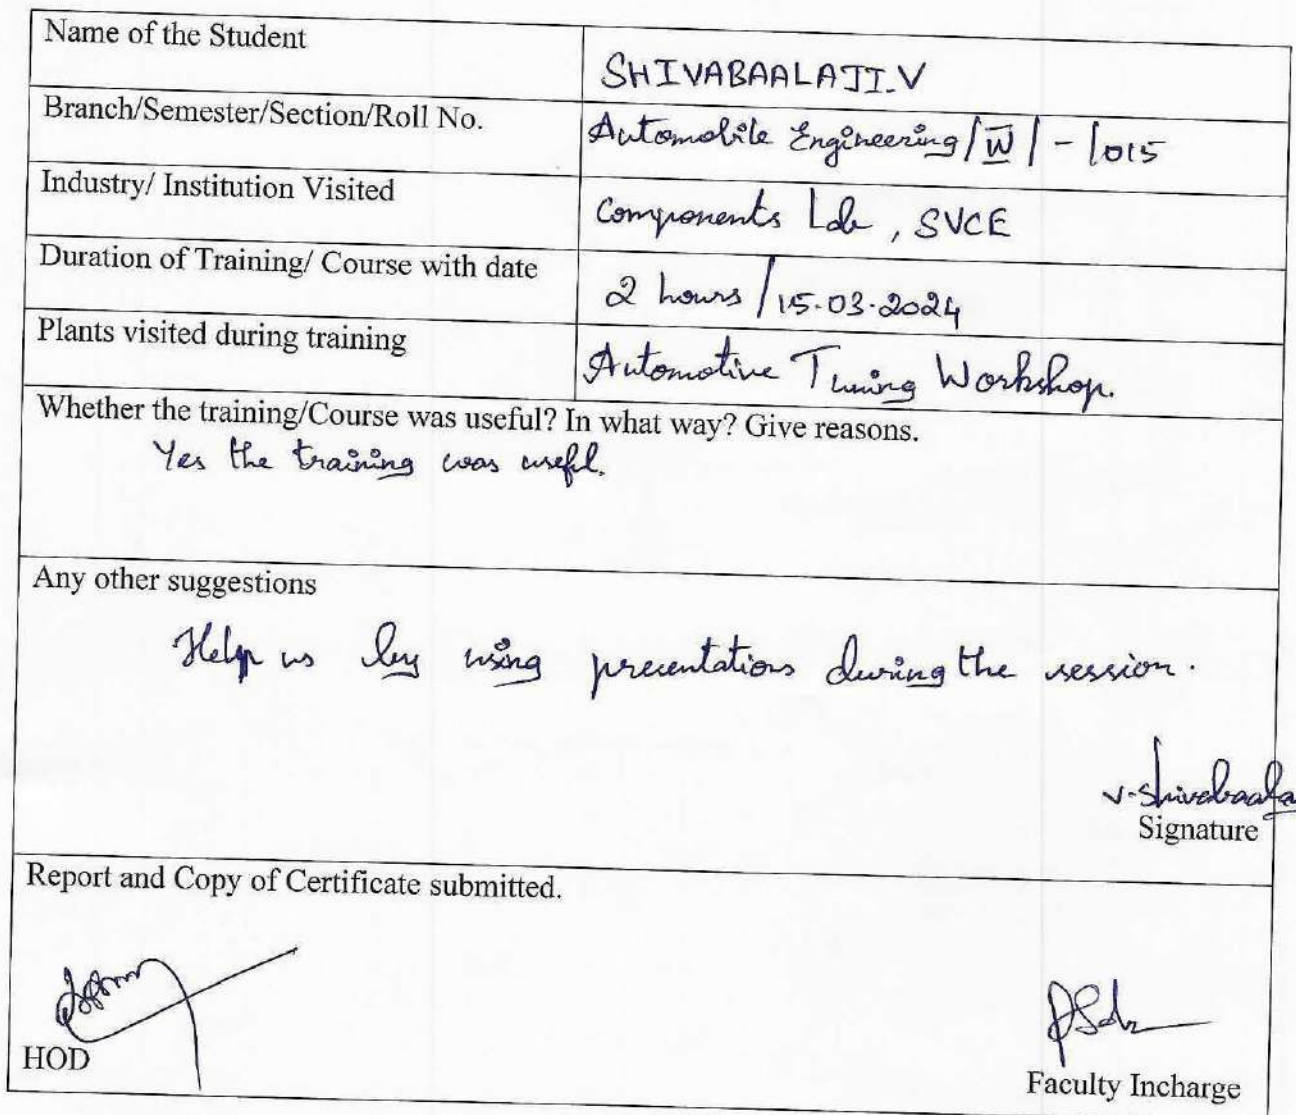 Name of the Student
SHIVABAALAJI.V
Branch/Semester/Section/Roll No.
Automobile Engineering/IV/-/015
Industry/ Institution Visited
Components Lab, SVCE
Duration of Training/ Course with date
2 hours/15.03.2024
Plants visited during training
Automotive Tuning Workshop.
Whether the training/Course was useful? In what way? Give reasons.
Yes the training was usefl.
Any other suggestions
Help us by using presentations during the session.
V.Shivabaala
Signature
Report and Copy of Certificate submitted.
HOD
Faculty Incharge